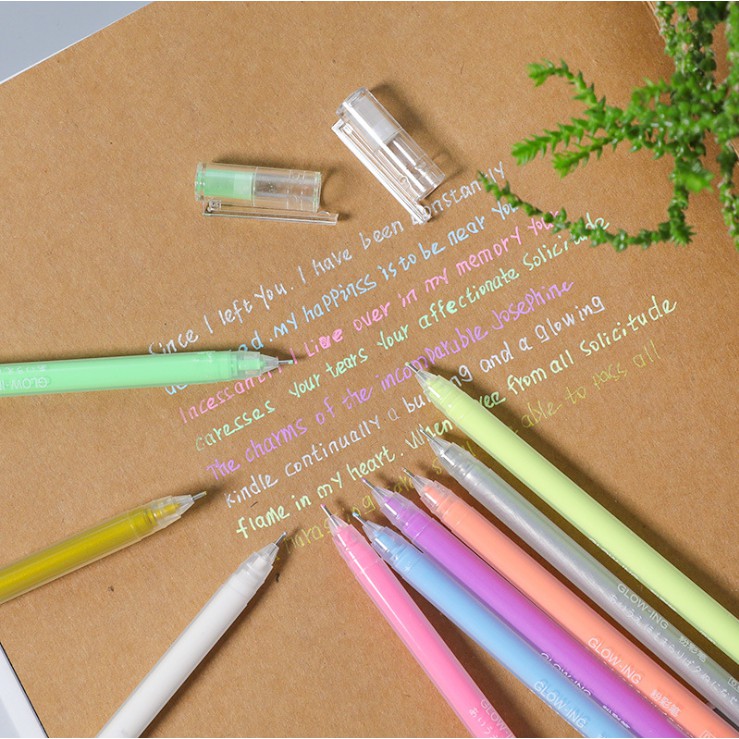 Since I left You. I have been onstantly
my happinss is to be near You
Incessantly I live over in my memory Your
caresses Your tears Your affectionate Solicitude
The charms of the incomparable Josephine
Kindle continually a and a glowing
flame in my heart. When from all Solicitude
able to pass all
GLOW-ING
GLOW-ING
GLOW-ING 粉彩笔
GLOW-ING
GLOW-ING